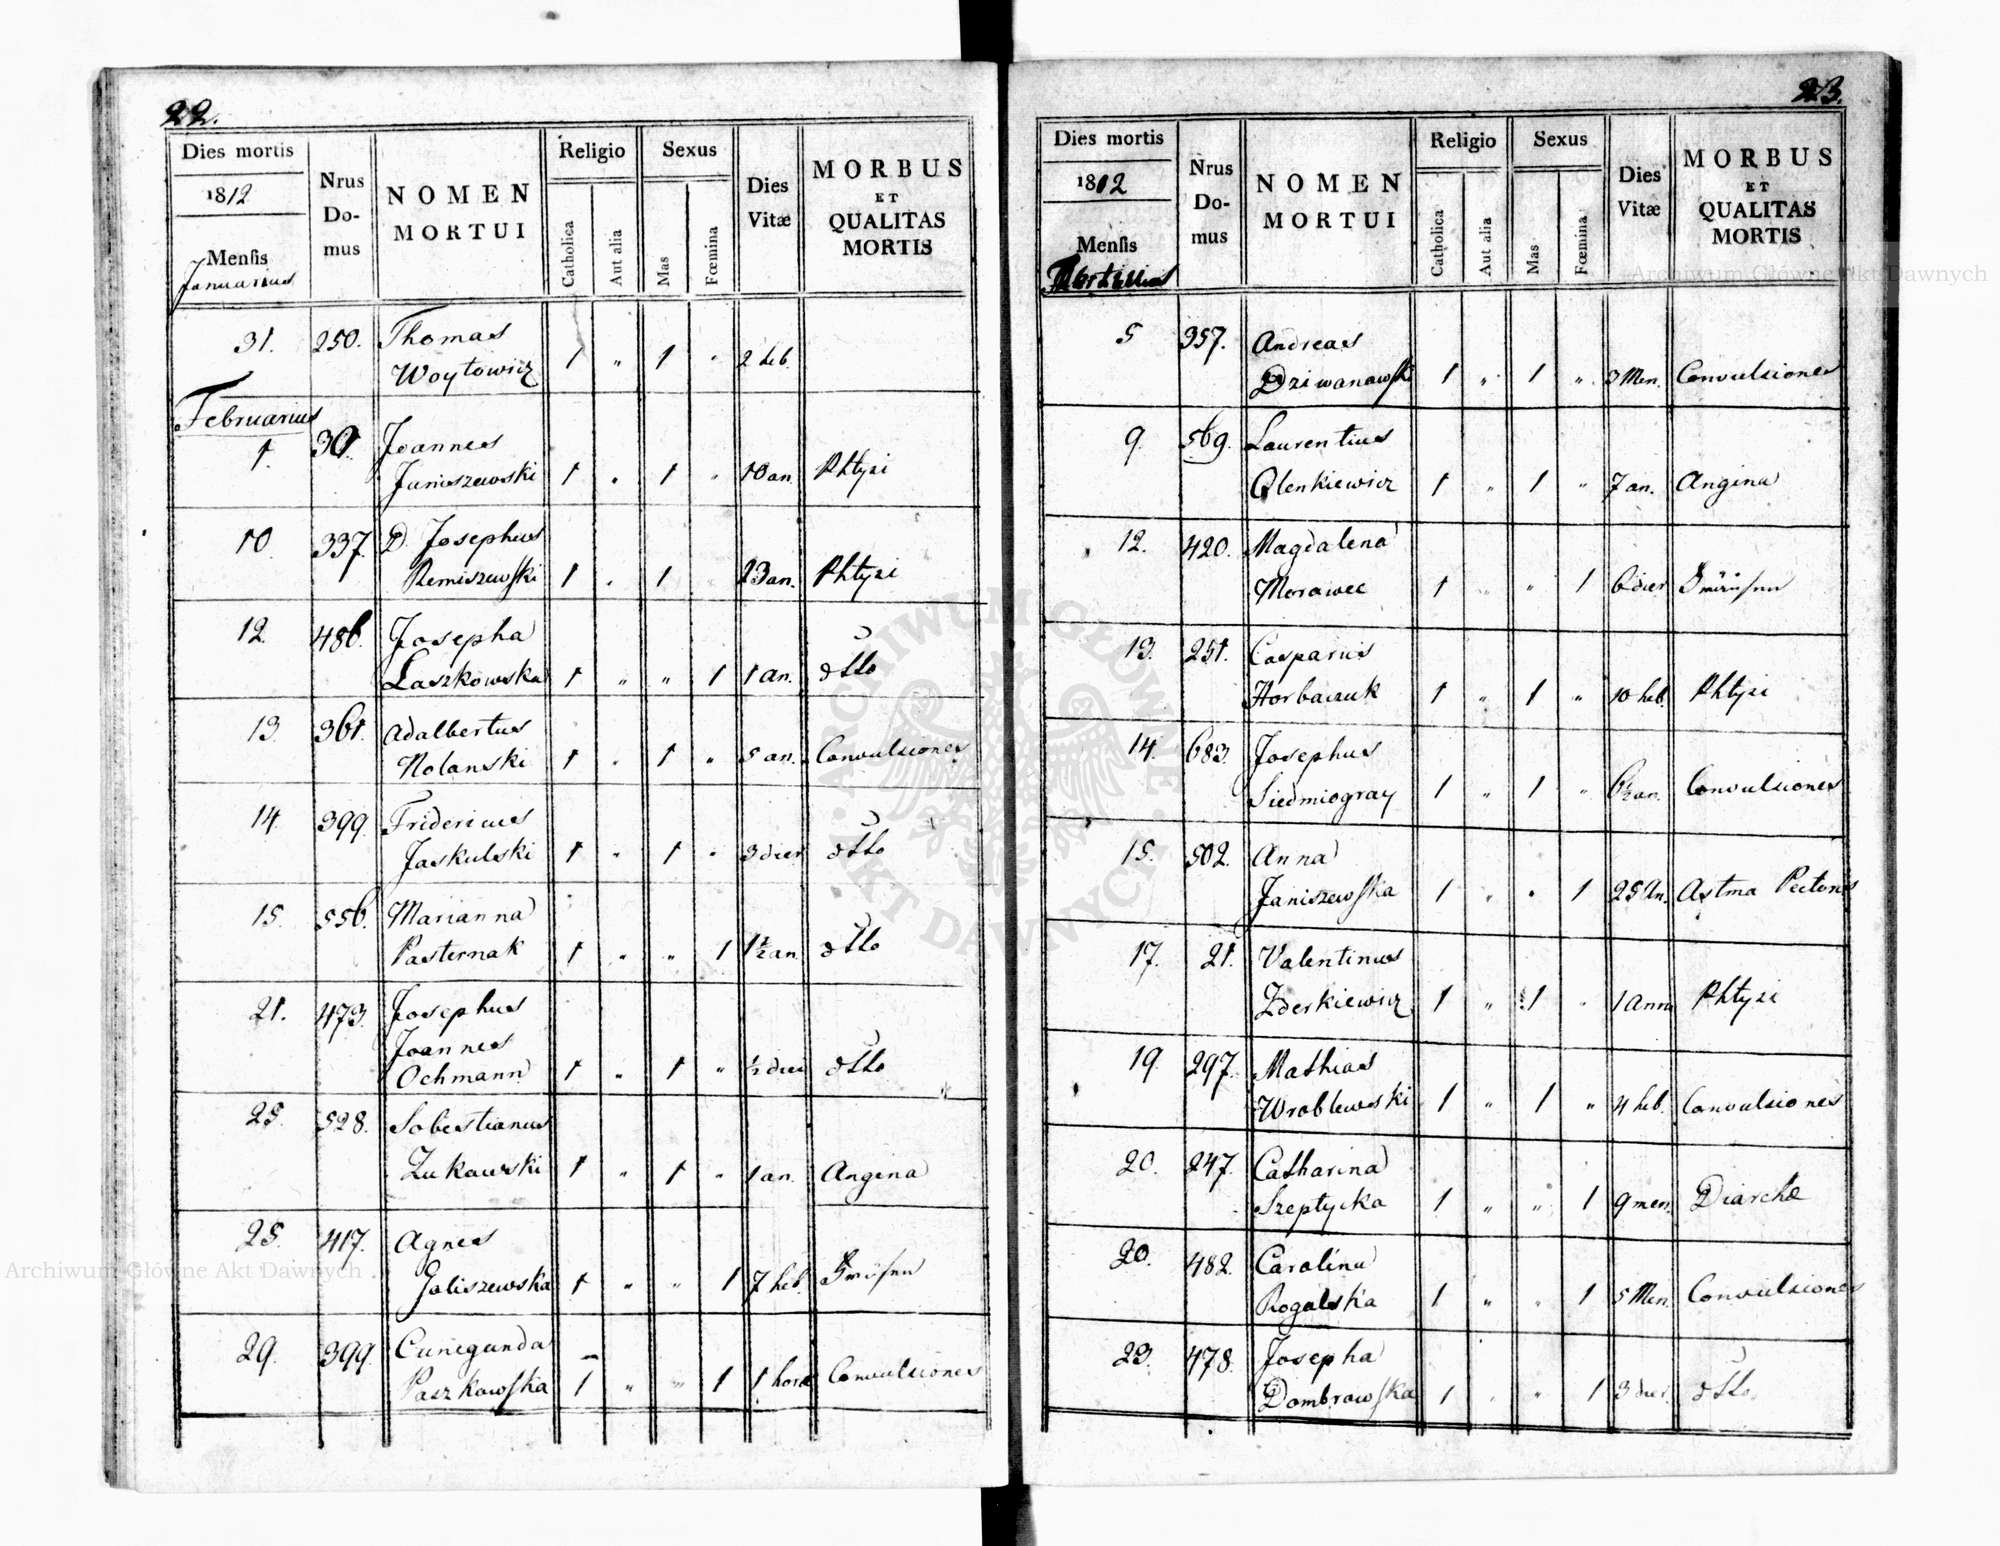 22.
Dies mortis
1812
Mensis
Januarius
Nrus
Do-
mus
NOMEN
MORTUI
Religio
Catholica
Aut alia
Sexus
Mas
Fœmina
Dies
Vitæ
MORBUS
ET
QUALITAS
MORTIS
31. 250. Thomas
Woytowicz 1 „ 1 „ 2 heb.
Februarius
1. 30. Joannes
Juniszewski 1 „ 1 „ 10 an. Phtysi
10 337 D. Josephus
Remiszewski 1 „ 1 „ 23 an. Phtysi
12. 486. Josepha
Laszkowska 1 „ „ 1 1 an. dtto
13. 361. Adalbertus
Nolanski 1 „ 1 „ 5 an. Convulsiones
14. 399. Fridericus
Jaskulski 1 „ 1 „ 3 dier dtto
15. 556. Marianna
Pasternak 1 „ „ 1 1½ an dtto
21. 473. Josephus
Joannes
Ochmann 1 „ 1 „ ½ diei dtto
25. 528. Sobestianus
Zukawski 1 „ 1 „ 1 an. Angina
25. 417. Agnes
Galiszewska 1 „ „ 1 7 heb.
29. 399. Cunegunda
Paszkowska 1 „ „ 1 1 hora Convulsiones
23.
Dies mortis
1812
Mensis
Nrus
Do-
mus
NOMEN
MORTUI
Religio
Catholica
Aut alia
Sexus
Mas
Fœmina
Dies
Vitæ
MORBUS
ET
QUALITAS
MORTIS
5 357. Andreas
Dziwanawski 1 „ 1 „ 3 Men. Convulsiones
9. 569. Laurentius
Olenkiewicz 1 „ 1 „ 7 an. Angina
12. 420. Magdalena
Morawec 1 „ „ 1 6 dier
13. 251. Casparus
Horbaczuk 1 „ 1 „ 10 heb. Phtysi
14. 683. Josephus
Siedmiogray 1 „ 1 „ 6½ an. Convulsiones
15. 502. Anna
Janiszewska 1 „ „ 1 25 An. Astma Pectoris
17. 21. Valentinus
Zderkiewicz 1 „ 1 „ 1 Anni Phtysi
19. 297. Mathias
Wroblewski 1 „ 1 „ 4 heb. Convulsiones
20. 247. Catharina
Szeptycka 1 „ „ 1 9 men. Diarche
20. 482. Carolina
Rogalska 1 „ „ 1 5 Men. Convulsiones
23. 478. Josepha
Dombrawska 1 „ „ 1 3 dier. dtto.
Archiwum Główne Akt Dawnych
Archiwum Główne Akt Dawnych
ARCHIWUM GŁÓWNE · AKT DAWNYCH ·